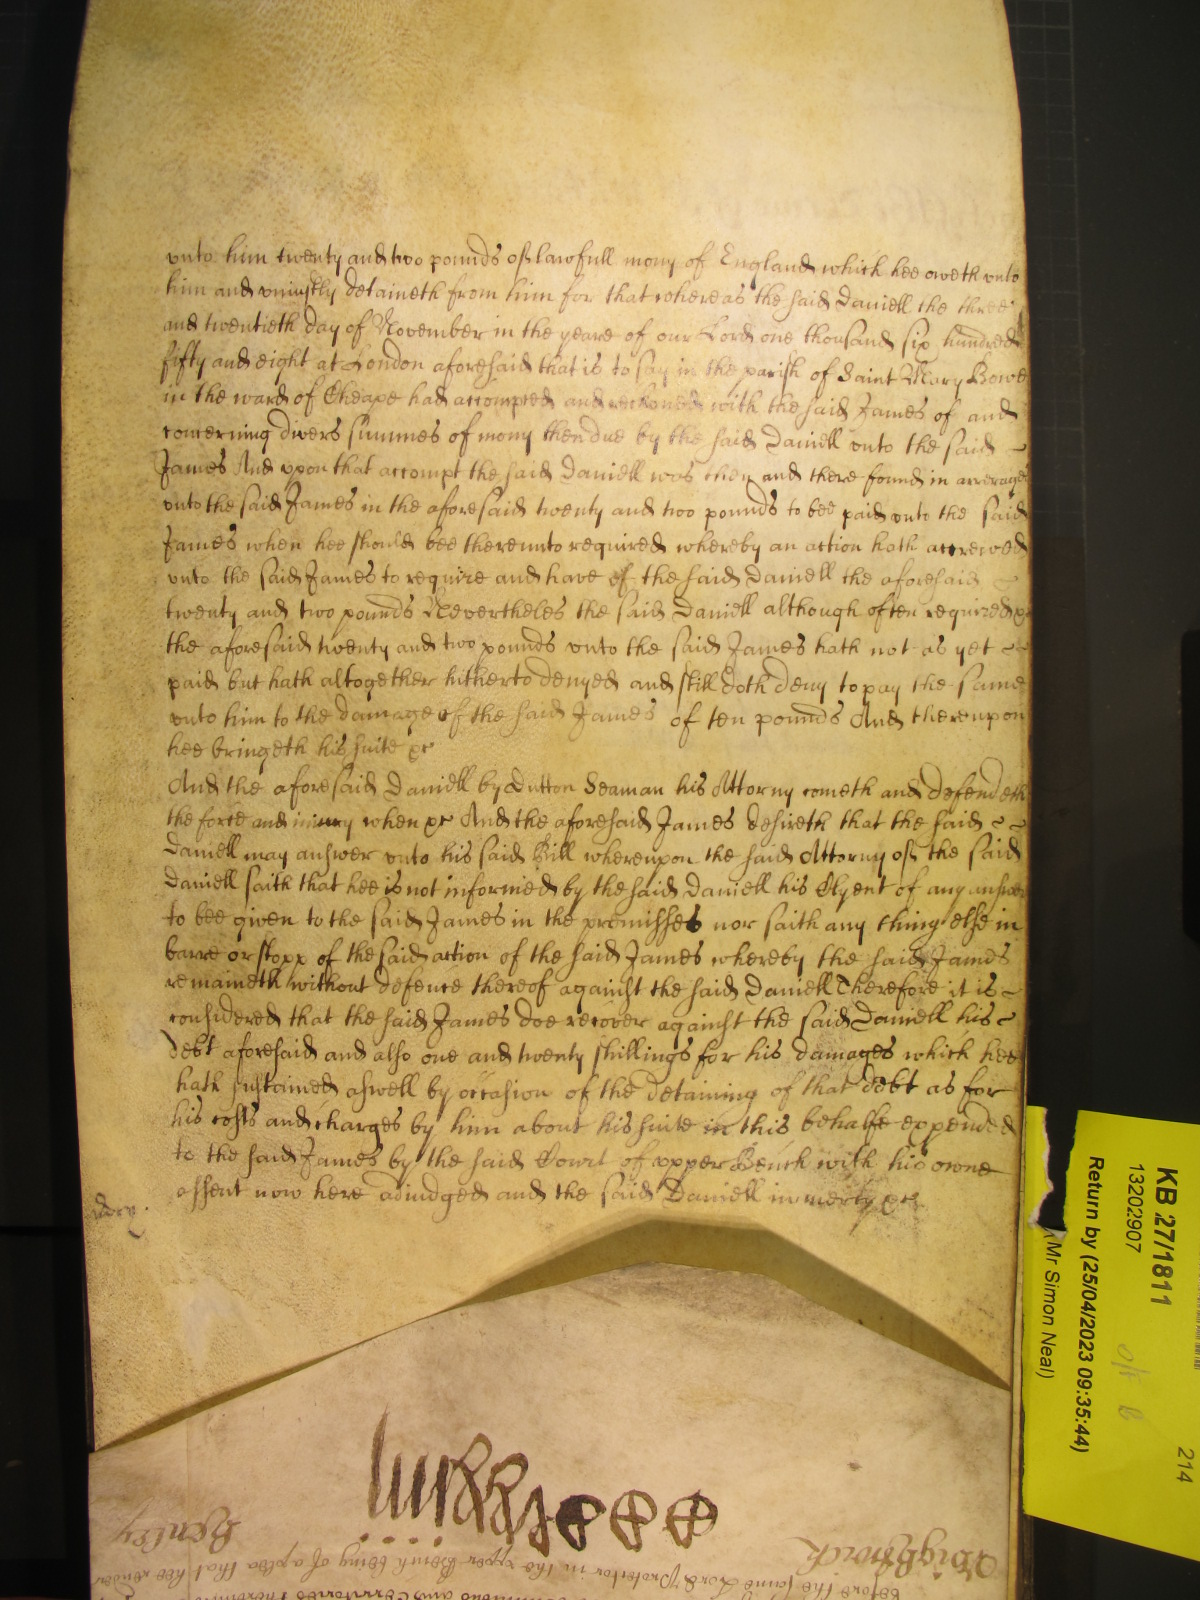 vnto him twenty and two pounds of lawfull mony of England which hee oweth vnto
him and vniustly detaineth from him for that whereas the said Daniell the three
and twentieth day of November in the yeare of our Lord one thousand six hundred
fifty and eight at London aforesaid that is to say in the parish of Saint Mary Bowe
in the ward of Cheape had accompted and reckoned with the said James of and
concerning divers summes of mony then due by the said Daniell vnto the said
James And vpon that accompt the said Daniell was then and there found in arrerages
vnto the said James in the aforesaid twenty and two pounds to bee paid vnto the said
James when hee should bee therevnto required whereby an action hath accrewed
vnto the said James to require and have of the said Daniell the aforesaid
twenty and two pounds Neverthelesse the said Daniell although often required &c
the aforesaid twenty and two pounds vnto the said James hath not as yet
paid but hath altogether hitherto denyed and still doth deny to pay the same
vnto him to the damage of the said James of ten pounds And therevpon
hee bringeth his suite &c
And the aforesaid Daniell by Dutton Seaman his Attorny cometh and defendeth
the force and iniury when &c And the aforesaid James desireth that the said
Daniell may answer vnto his said Bill wherevpon the said Attorny of the said
Daniell saith that hee is not informed by the said Daniell his Clyent of any answer
to bee given to the said James in the premisses nor saith any thing else in
barre or stopp of the said action of the said James whereby the said James
remaineth without defence thereof against the said Daniell Therefore it is
considered that the said James doe recover against the said Daniell his
debt aforesaid and also one and twenty shillings for his damages which hee
hath sustained aswell by occasion of the detaining of that debt as for
his costs and charges by him about his suite in this behalfe expended
to the said James by the said Court of vpper Bench with his owne
assent now here adiudged and the said Daniell in mercy &c
mercy
KB 27/1811
13202907
Return by (25/04/2023 09:35:44)
Mr Simon Neal)
214
Wightwick
Henley
before the same Lord Protector in the vpper Bench being of a plea that hee render